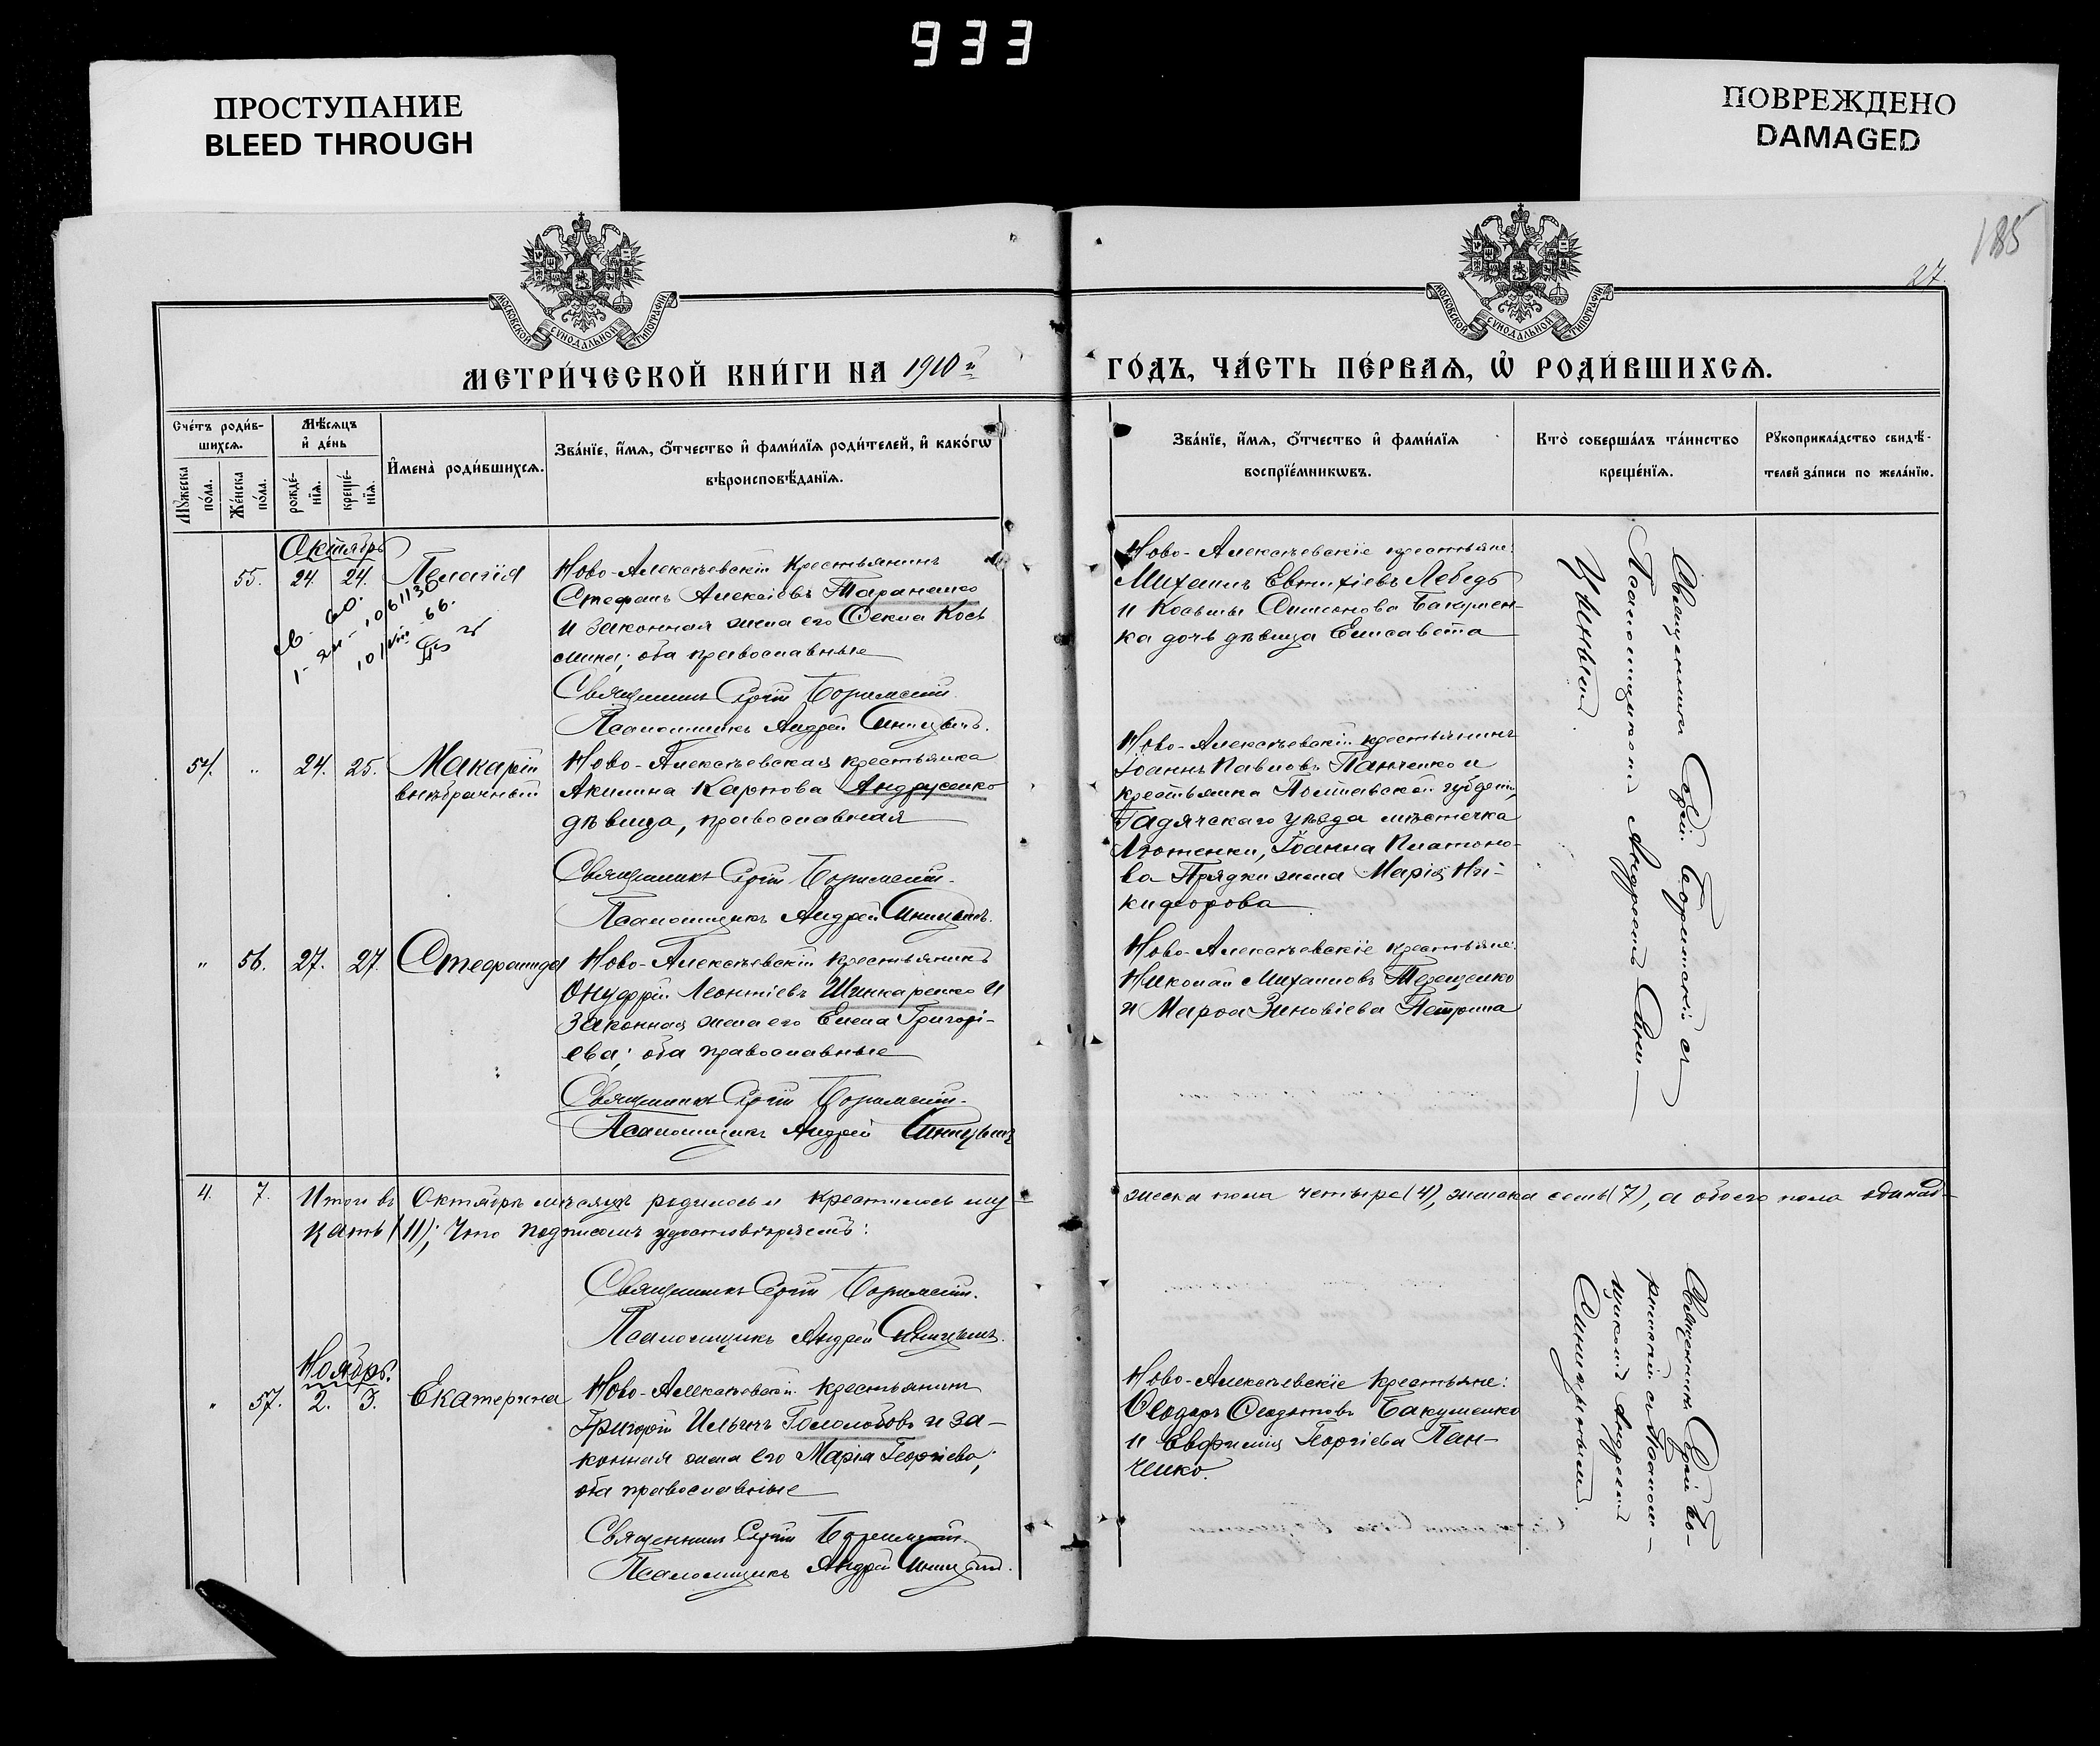 933
ПРОСТУПАНИЕ
BLEED THROUGH
ПОВРЕЖДЕНО
DAMAGED
185
27.
МОСКОВСКОЙ СѴНОДАЛЬНОЙ ТИПОГРАФІИ
МОСКОВСКОЙ СѴНОДАЛЬНОЙ ТИПОГРАФІИ
МЕТРИ́ЧЕСКОЙ КНИ́ГИ НА 1910й
ГО́ДЪ, ЧА́СТЬ ПЕ́РВАѦ, Ѡ҆ РОДИ́ВШИХСѦ.
Сче́тъ роди́в-
шихсѧ.
Мѣ́сѧцъ
и҆ де́нь
Мꙋ́жеска
по́ла.
Же́нска
по́ла.
рожде́-
нїѧ.
креще́-
нїѧ.
И҆мена̀ роди́вшихсѧ.
Зва́нїе, и҆́мѧ, ѻ҆́тчество и҆ фами́лїѧ роди́телей, и҆ како́гѡ
вѣроисповѣ́данїѧ.
Зва́нїе, и҆́мѧ, ѻ҆́тчество и҆ фами́лїѧ
воспрїе́мникѡвъ.
Кто̀ соверша́лъ та́инство
креще́нїѧ.
Рꙋкоприкла́дство свидѣ́-
телей за́писи по жела́нїю.
Октябрь
55. 24 24. Пелагія
Ново-Алексѣевскій крестьянинъ
Стефанъ Алексіевъ Тараненко
и законная жена его Ѳекла Кось
мина; оба православные
Священникъ Сергій Боримскій
Псаломщикъ Андрей Синицынъ.
Ново-Алексѣевскіе крестьяне:
Михаилъ Евтихіевъ Лебедь
и Косьмы Симонова Бакумен-
ка дочь дѣвица Елисавета
54. " 24. 25. Макарій
внѣбрачный
Ново-Алексѣевская крестьянка
Акилина Карпова Андрусенко
дѣвица, православная
Священникъ Сергій Боримскій.
Псаломщикъ Андрей Синицынъ.
Ново-Алексѣевскій крестьянинъ
Іоаннъ Павловъ Панченко и
крестьянка Полтавской губерніи,
Гадячскаго уѣзда мѣстечка
Лютенки, Іоанна Платоно-
ва Прядки жена Марія Ни-
кифорова
" 56. 27. 27. Стефанида
Ново-Алексѣевскій крестьянинъ
Онуфрій Леонтіевъ Шинкаренко и
законная жена его Елена Григорі-
ева; оба православные
Священникъ Сергій Боримскій.
Псаломщикъ Андрей Синицынъ
Ново-Алексѣевскіе крестьяне:
Николай Михаиловъ Терещенко
и Марѳа Зиновіева Петрина
Священникъ Сергій Боримскій съ
Псаломщикомъ Андреемъ Сини-
цынымъ.
4. 7. Итого въ Октябрѣ мѣсяцѣ родилось и крестилось му
жеска пола четыре (4), женска семь (7), а обоего пола одинад-
цать (11); Что подписомъ удостовѣряемъ:
Священникъ Сергій Боримскій.
Псаломщикъ Андрей Синицынъ.
Ноябрь.
" 57. 2. 3. Екатерина
Ново-Алексѣевскій крестьянинъ
Григорій Ильичъ Гололобовъ и за-
конная жена его Марія Георгіева;
оба православные
Священникъ Сергій Боримскій.
Псаломщикъ Андрей Синицынъ.
Ново-Алексѣевскіе крестьяне:
Ѳеодоръ Ѳеодотовъ Бакуменко
и Евфимія Георгіева Пан-
ченко.
Священникъ Сергій Бо-
римскій съ Псалом-
щикомъ Андреемъ
Синицынымъ.